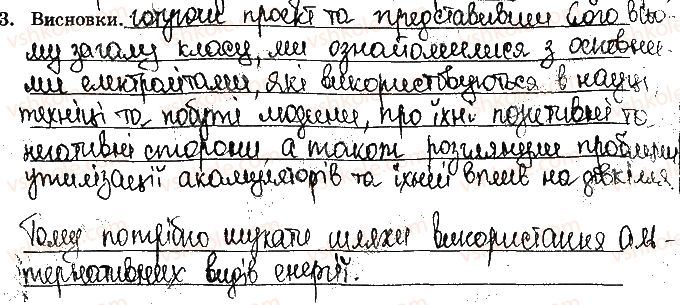 3. Висновки. готуючи проект та представивши його всьо-
му загалу класу, ми ознайомилися з основни-
ми електролітами, які використовуються в науці,
техніці та побуті людини, про їхні позитивні та
негативні сторони, а також розглянули проблеми
утилізації акамуляторів та їхній вплив на довкілля.
Тому потрібно шукати шляхи використання аль-
тернативних видів енергії.